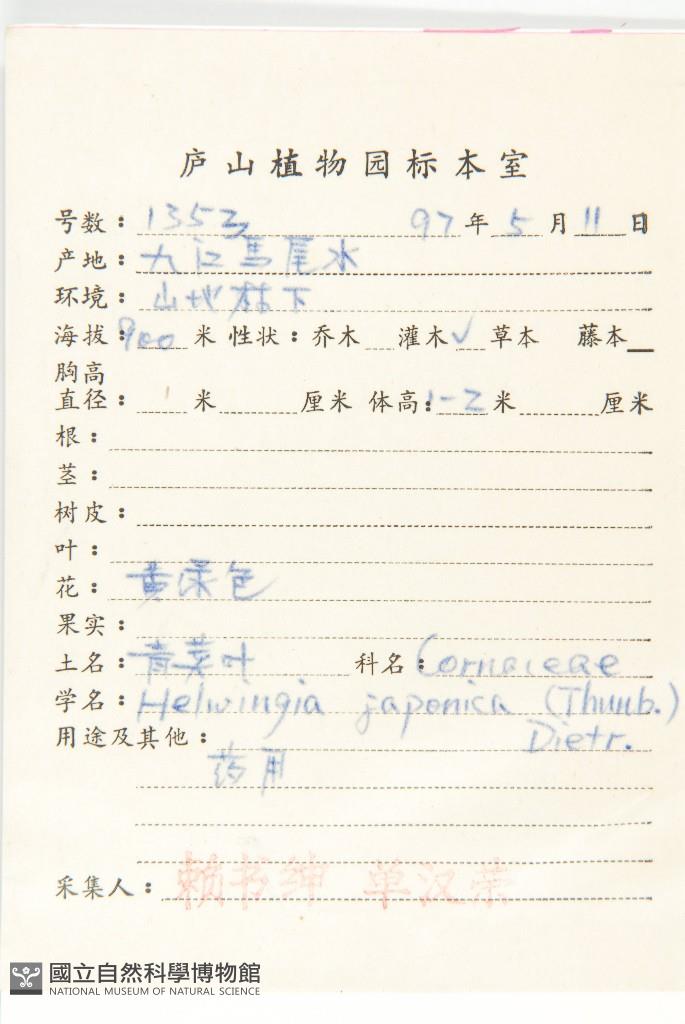 庐山植物园标本室
号数：1353 97年5月11日
产地：九江馬尾水
环境：山地林下
海拔：900米 性状：乔木 灌木✓ 草本 藤本
胸高
直径：1米 厘米 体高：1-2米 厘米
根：
茎：
树皮：
叶：
花：黄绿色
果实：
土名：青荚叶 科名：Cornaceae
学名：Helwingia japonica (Thunb.)
Dietr.
用途及其他：
药用
采集人：赖书绅 单汉荣
國立自然科學博物館
NATIONAL MUSEUM OF NATURAL SCIENCE